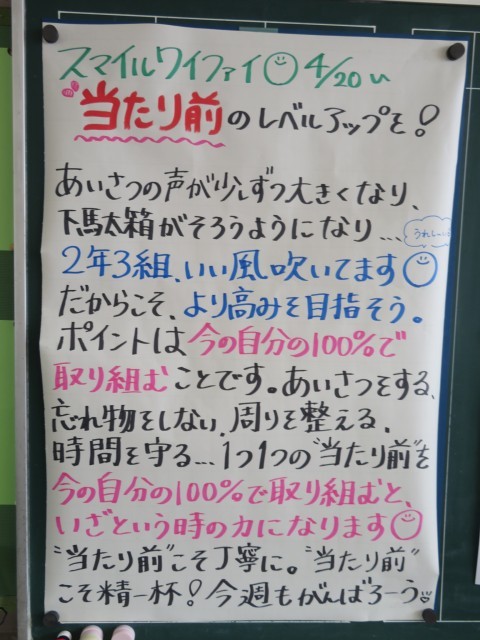 スマイルワイファイ 4/20 い
当たり前のレベルアップを!
あいさつの声が少しずつ大きくなり、
下駄箱がそろうようになり...
うれしーい
2年3組、いい風吹いてます
だからこそ、より高みを目指そう。
ポイントは今の自分の100%で
取り組むことです。あいさつをする、
忘れ物をしない、周りを整える、
時間を守る...1つ1つの"当たり前"を
今の自分の100%で取り組むと、
いざという時の力になります
"当たり前"こそ丁寧に。"当たり前"
こそ精一杯!今週もがんばろーう。